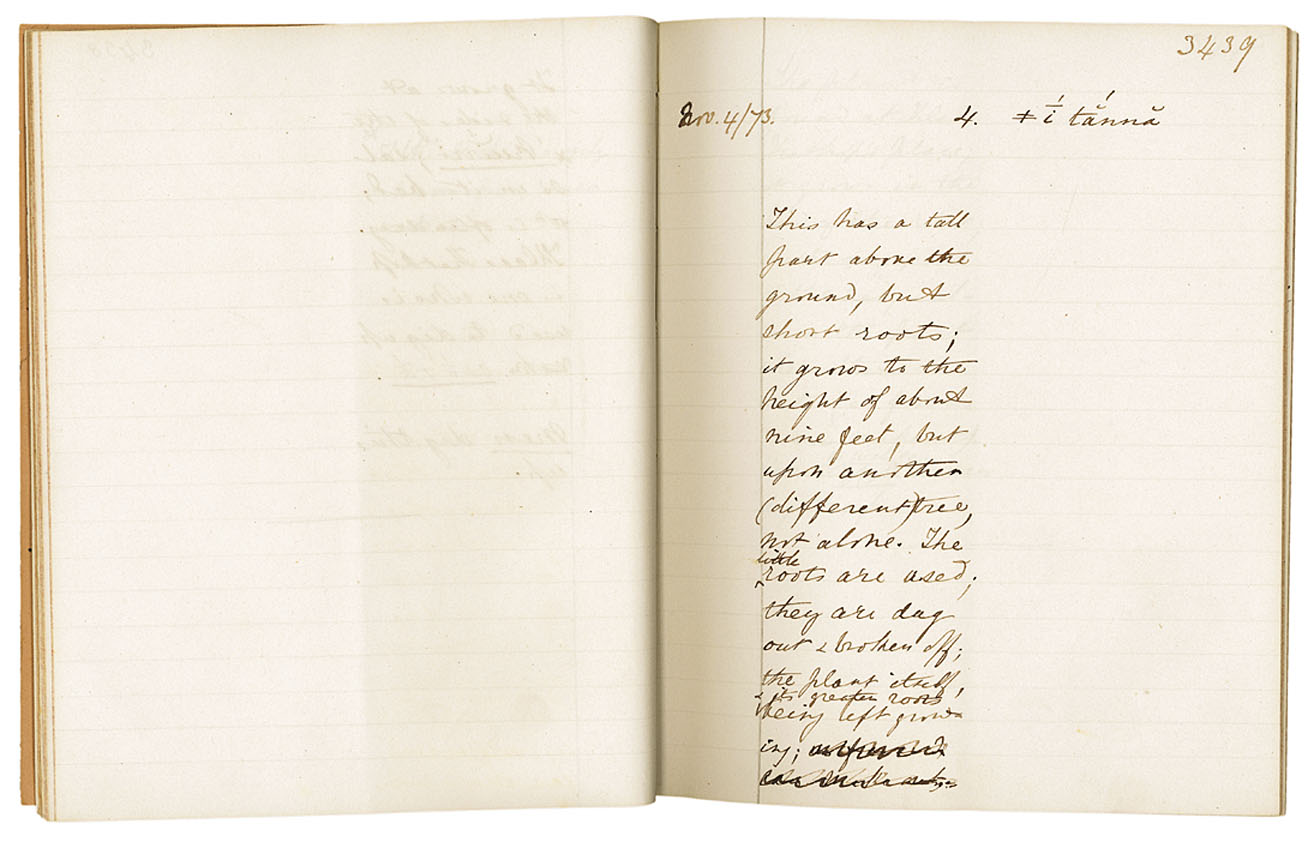 3439
Nov. 4/73. 4. ǂí tắnnă
This has a tall
part above the
ground, but
short roots;
it grows to the
height of about
nine feet, but
upon another
(different) tree,
not alone. The
little
roots are used;
they are dug
out & broken off;
the plant itself,
& its greater roots
being left grow-
ing;